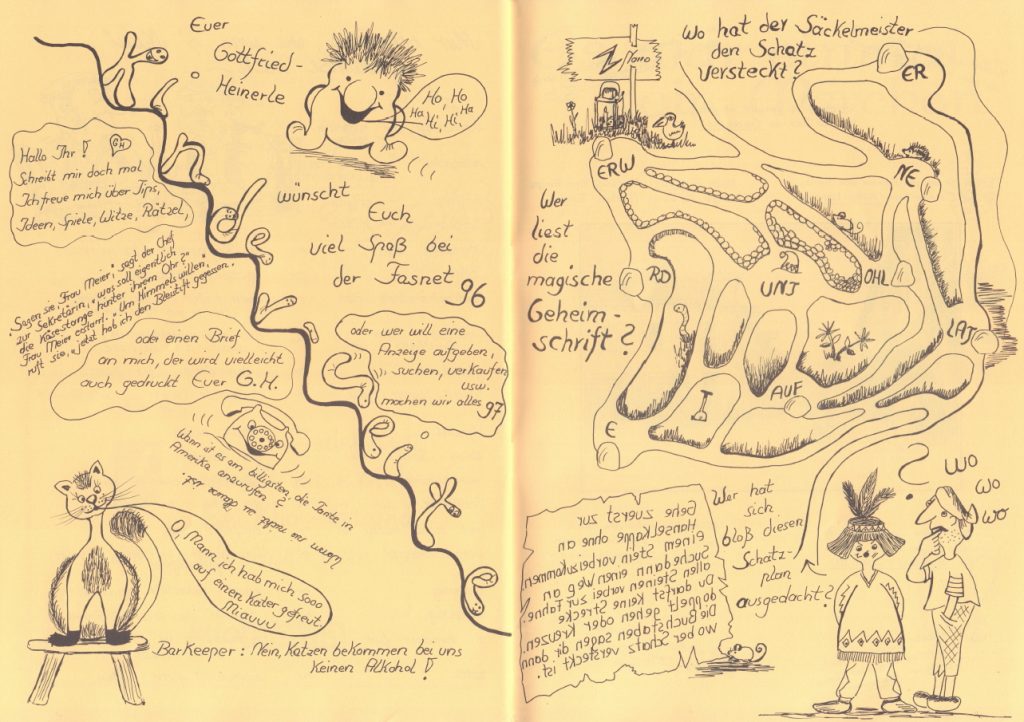 Euer
Gottfried-
Heinerle
Ho, Ho
Ha, Hi, Hi, Ha
wünscht
Euch
viel Spaß bei
der Fasnet
96
Hallo Ihr!
GH
Schreibt mir doch mal
Ich freue mich über Tips,
Ideen, Spiele, Witze, Rätzel,
"Frau Meier," sagt der Chef
zur Sekretärin, "was soll eigentlich
die Käsestange hunter ihrem Ohr?"
Frau Meier erstarrt. "Um Himmels willen,"
ruft sie, "jetzt hab ich den Bleistift gegessen."
oder einen Brief
an mich, der wird vielleicht
auch gedruckt Euer G.H.
oder wer will eine
Anzeige aufgeben,
suchen, verkaufen
usw.
machen wir alles
97
Wann ist es am billigsten, die Tante in
Amerika anzurufen?
Wenn sie nicht zu Hause ist.
O, Mann ich hab mich sooo
auf einen Kater gefreut.
Miauuu
Barkeeper: Nein, Katzen bekommen bei uns
keinen Alkohol!
Narro
Wo hat der Säckelmeister
den Schatz
versteckt?
ER
ERW
NE
Wer
liest
die
magische
Geheim-
schrift?
RD
UNT
OHL
LAT
I
AUF
E
Gehe zuerst zur
Hanselkappe ohne an
einem Stein vorbeizukommen.
Suche dann einen Weg an
allen Steinen vorbei zur Tanne.
Du darfst keine Strecke
doppelt gehen oder kreuzen.
Die Buchstaben sagen dir dann
wo der Schatz versteckt ist.
Wer hat
sich
bloß diesen
Schatz-
plan
ausgedacht?
?
wo
wo
wo